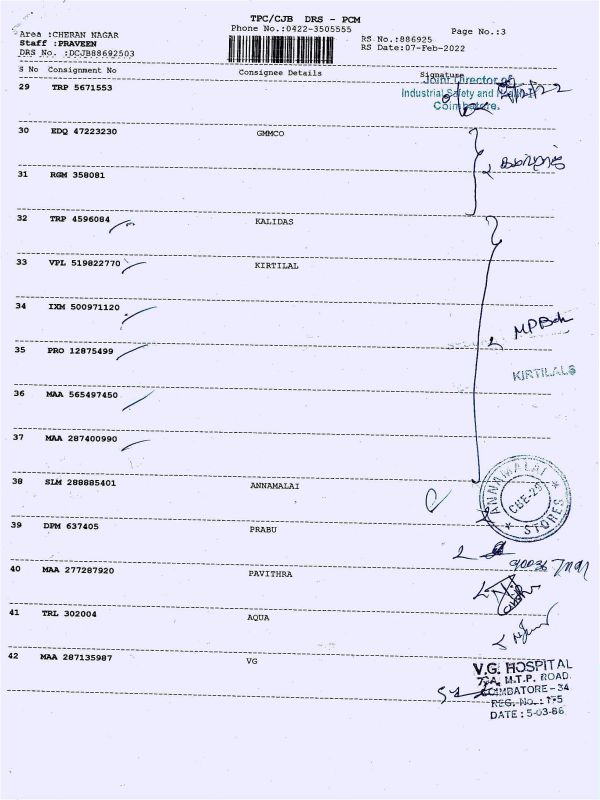 TPC/CJB DRS - PCM
Phone No.:0422-3505555
Area :CHERAN NAGAR
Staff :PRAVEEN
DRS No. :DCJB88692503
RS No.:886925
RS Date:07-Feb-2022
Page No.:3
S No Consignment No Consignee Details Signature
Joint Director of
Industrial Safety and
Coimbatore.
29 TRP 5671553
30 EDQ 47223230 GMMCO
31 RGM 358081
32 TRP 4596084 KALIDAS
33 VPL 519822770 KIRTILAL
34 IXM 500971120
35 PRO 12875499
KIRTILALS
36 MAA 565497450
37 MAA 287400990
38 SLM 288885401 ANNAMALAI
ANNAMALAI
CBE-29
STORES
39 DPM 637405 PRABU
40 MAA 277287920 PAVITHRA
41 TRL 302004 AQUA
42 MAA 287135987 VG
V.G. HOSPITAL
M.T.P. ROAD.
COIMBATORE - 34
REG. No.: 175
DATE : 5-03-86